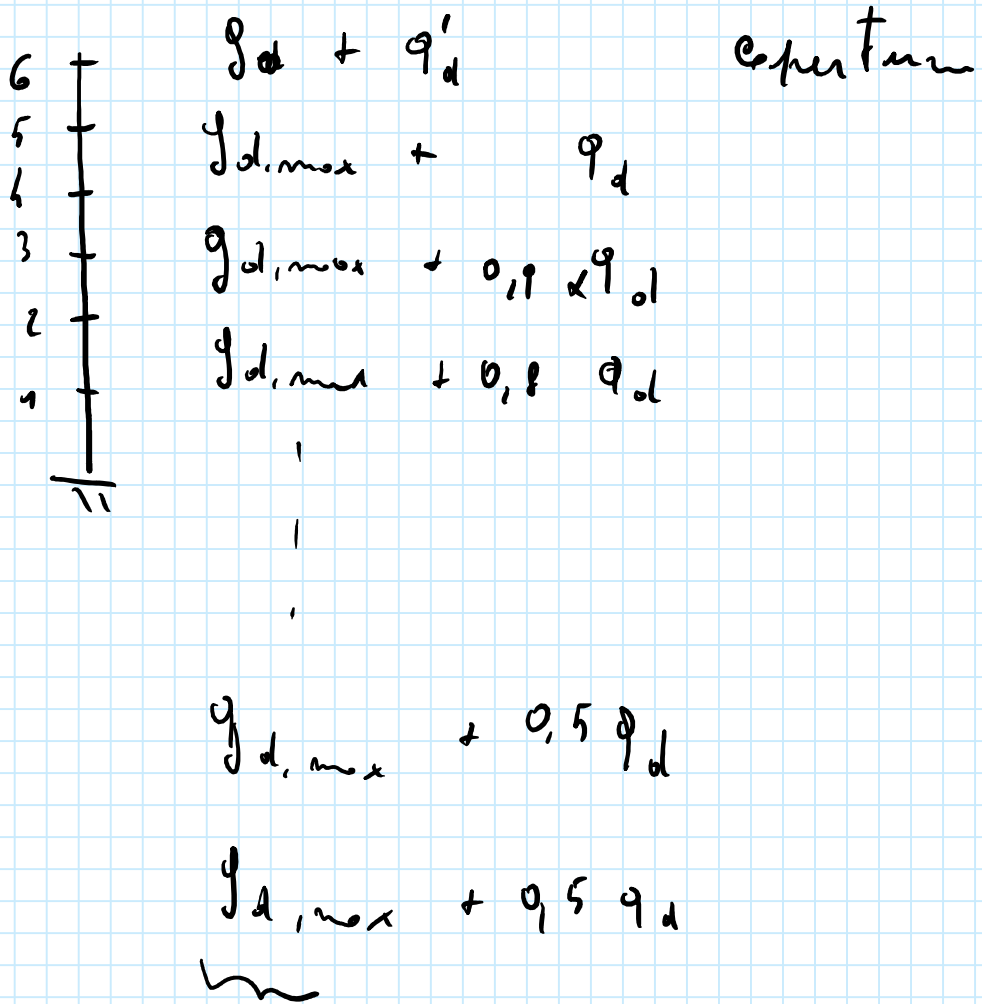 6
g d + q'd copertura
5
g d, max + q d
4
3
g d, max + 0,9 x q d
2
g d, max + 0,8 q d
1
g d, max + 0,5 q d
g d, max + 0,5 q d